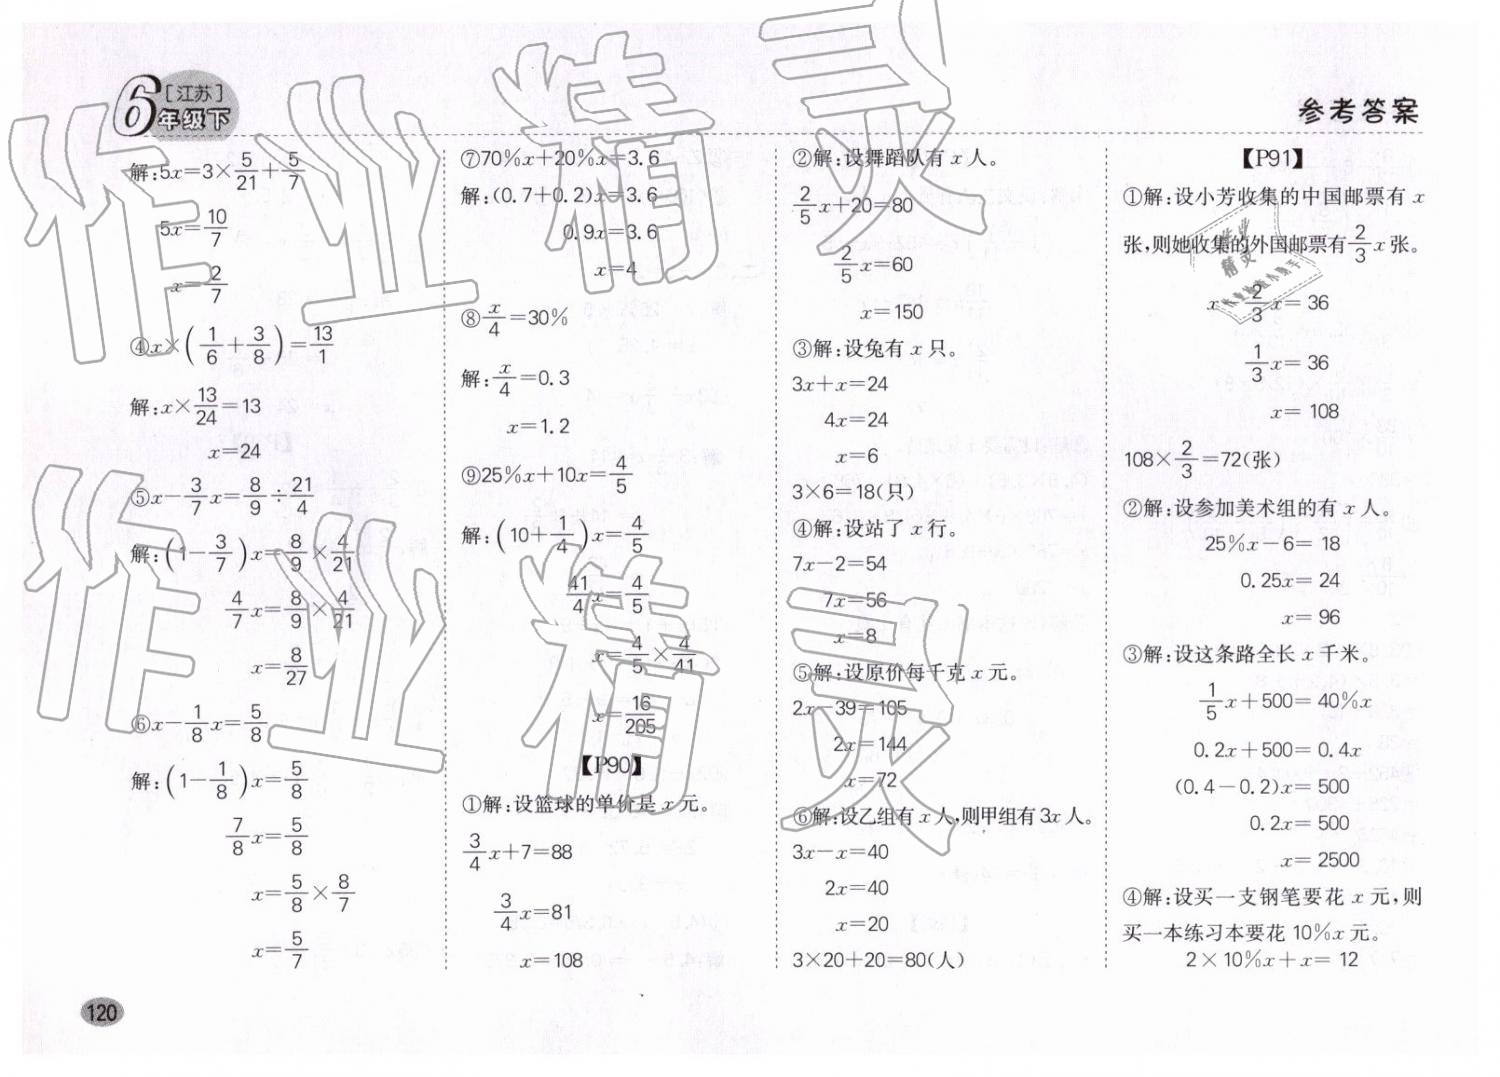 6年级下 [江苏]
参考答案
解:5x=3×5/21+5/7
5x=10/7
x=2/7
④x×(1/6+3/8)=13/1
解:x×13/24=13
x=24
⑤x-3/7x=8/9÷21/4
解:(1-3/7)x=8/9×4/21
4/7x=8/9×4/21
x=8/27
⑥x-1/8x=5/8
解:(1-1/8)x=5/8
7/8x=5/8
x=5/8×8/7
x=5/7
⑦70%x+20%x=3.6
解:(0.7+0.2)x=3.6
0.9x=3.6
x=4
⑧x/4=30%
解:x/4=0.3
x=1.2
⑨25%x+10x=4/5
解:(10+1/4)x=4/5
41/4x=4/5
x=4/5×4/41
x=16/205
【P90】
①解:设篮球的单价是x元。
3/4x+7=88
3/4x=81
x=108
②解:设舞蹈队有x人。
2/5x+20=80
2/5x=60
x=150
③解:设兔有x只。
3x+x=24
4x=24
x=6
3×6=18(只)
④解:设站了x行。
7x-2=54
7x=56
x=8
⑤解:设原价每千克x元。
2x-39=105
2x=144
x=72
⑥解:设乙组有x人,则甲组有3x人。
3x-x=40
2x=40
x=20
3×20+20=80(人)
【P91】
①解:设小芳收集的中国邮票有x
张,则她收集的外国邮票有2/3x张。
x-2/3x=36
1/3x=36
x=108
108×2/3=72(张)
②解:设参加美术组的有x人。
25%x-6=18
0.25x=24
x=96
③解:设这条路全长x千米。
1/5x+500=40%x
0.2x+500=0.4x
(0.4-0.2)x=500
0.2x=500
x=2500
④解:设买一支钢笔要花x元,则
买一本练习本要花10%x元。
2×10%x+x=12
120
作业精灵
作业精灵